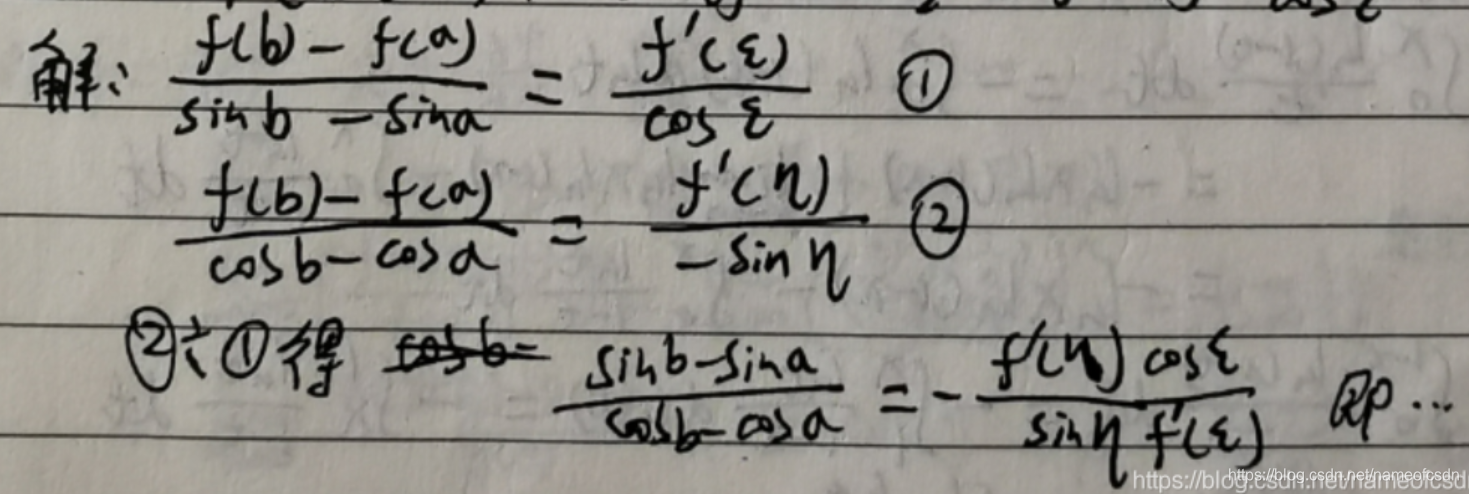 解: \frac{f(b)-f(a)}{\sin b-\sin a} = \frac{f'(ε)}{\cos ε} ①
\frac{f(b)-f(a)}{\cos b-\cos a} = \frac{f'(η)}{-\sin η} ②
②÷①得 \frac{\sin b-\sin a}{\cos b-\cos a} = -\frac{f'(η)\cos ε}{\sin η f'(ε)} 即…
https://blog.csdn.net/nameofcsdn